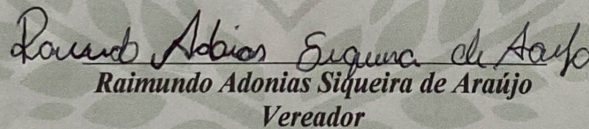 Raimundo Adonias Siqueira de Araújo
Raimundo Adonias Siqueira de Araújo
Vereador